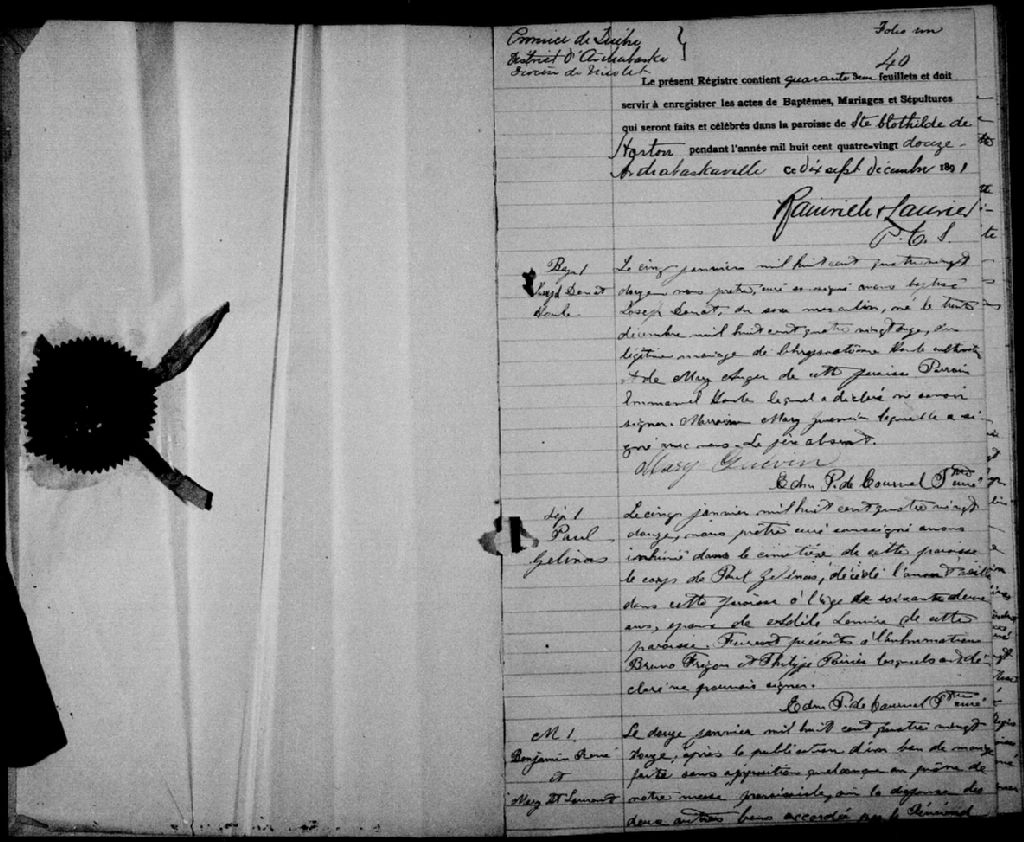 Province de Québec
District d'Arthabaska
Diocèse de Nicolet
Folio un
40
Le présent Régistre contient quarante feuillets et doit
servir à enregistrer les actes de Baptêmes, Mariages et Sépultures
qui seront faits et célébrés dans la paroisse de Ste Clothilde de
Horton pendant l'année mil huit cent quatre-vingt douze
Arthabaskaville Ce dix sept décembre 1891
Laurier
P. C. S.
Bap 1
Joseph Donat
Houle
Le cinq janvier mil huit cent quatre vingt
douze nous prêtre, curé soussigné avons baptisé
Joseph Donat, né le trente
décembre mil huit cent quatre vingt onze, du
légitime mariage de Chrysostôme Houle cultivateur
et de Mary Auger de cette paroisse Parrain
Emmanuel Houle lequel a déclaré ne savoir
signer. Marraine Mary laquelle a si-
gné avec nous. Le père absent.
Mary
Edm P. de Courval Ptre curé
Sép 1
Paul
Gelinas
Le cinq janvier mil huit cent quatre vingt
douze, nous prêtre curé soussigné avons
inhumé dans le cimetière de cette paroisse
le corps de Paul Gelinas, décédé l'avant veille
dans cette paroisse à l'âge de soixante deux
ans, époux de Lemire de cette
paroisse. Furent présents à l'inhumation
Bruno et Philippe lesquels ont dé-
claré ne pouvoir signer.
Edm P. de Courval Ptre curé
M 1
Benjamin
et
Mary St Laurent
Le douze janvier mil huit cent quatre vingt
douze, après la publication d'un ban de mariage
faite sans opposition quelconque au prône de
notre messe paroissiale, vu la dispense des
deux autres bans accordée par le Révérend